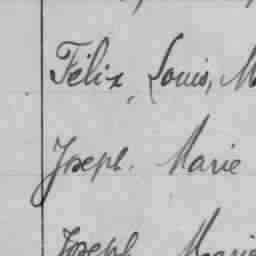 Félix, Louis, M
Joseph. Marie
Joseph Marie